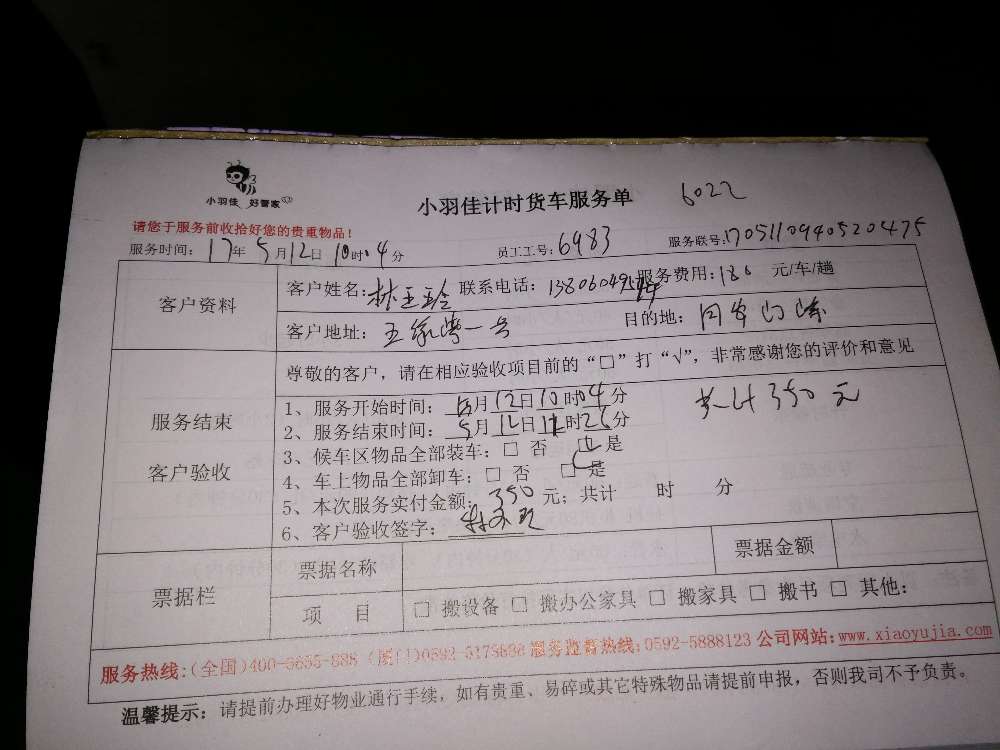 小羽佳 好管家
小羽佳计时货车服务单 6022
请您于服务前收拾好您的贵重物品！
服务时间：17年5月12日10时04分 员工工号：6983 服务联号：1705110940520475
客户资料
客户姓名：林玉玲 联系电话： 服务费用：180 元/车/趟
客户地址：王家 一号 目的地：同安
服务结束
客户验收
尊敬的客户，请在相应验收项目前的“□”打“√”，非常感谢您的评价和意见
1、服务开始时间：5月12日10时04分
共计350元
2、服务结束时间：5月12日11时26分
3、候车区物品全部装车：□ 否 □ 是
4、车上物品全部卸车：□ 否 □ 是
5、本次服务实付金额：350元；共计 时 分
6、客户验收签字：
票据栏
票据名称 票据金额
项 目 □ 搬设备 □ 搬办公家具 □ 搬家具 □ 搬书 □ 其他：
服务热线：(全国)400- (厦门)0592- 服务监督热线：0592-5888123 公司网站：www.xiaoyujia.com
温馨提示：请提前办理好物业通行手续，如有贵重、易碎或其它特殊物品请提前申报，否则我司不予负责。